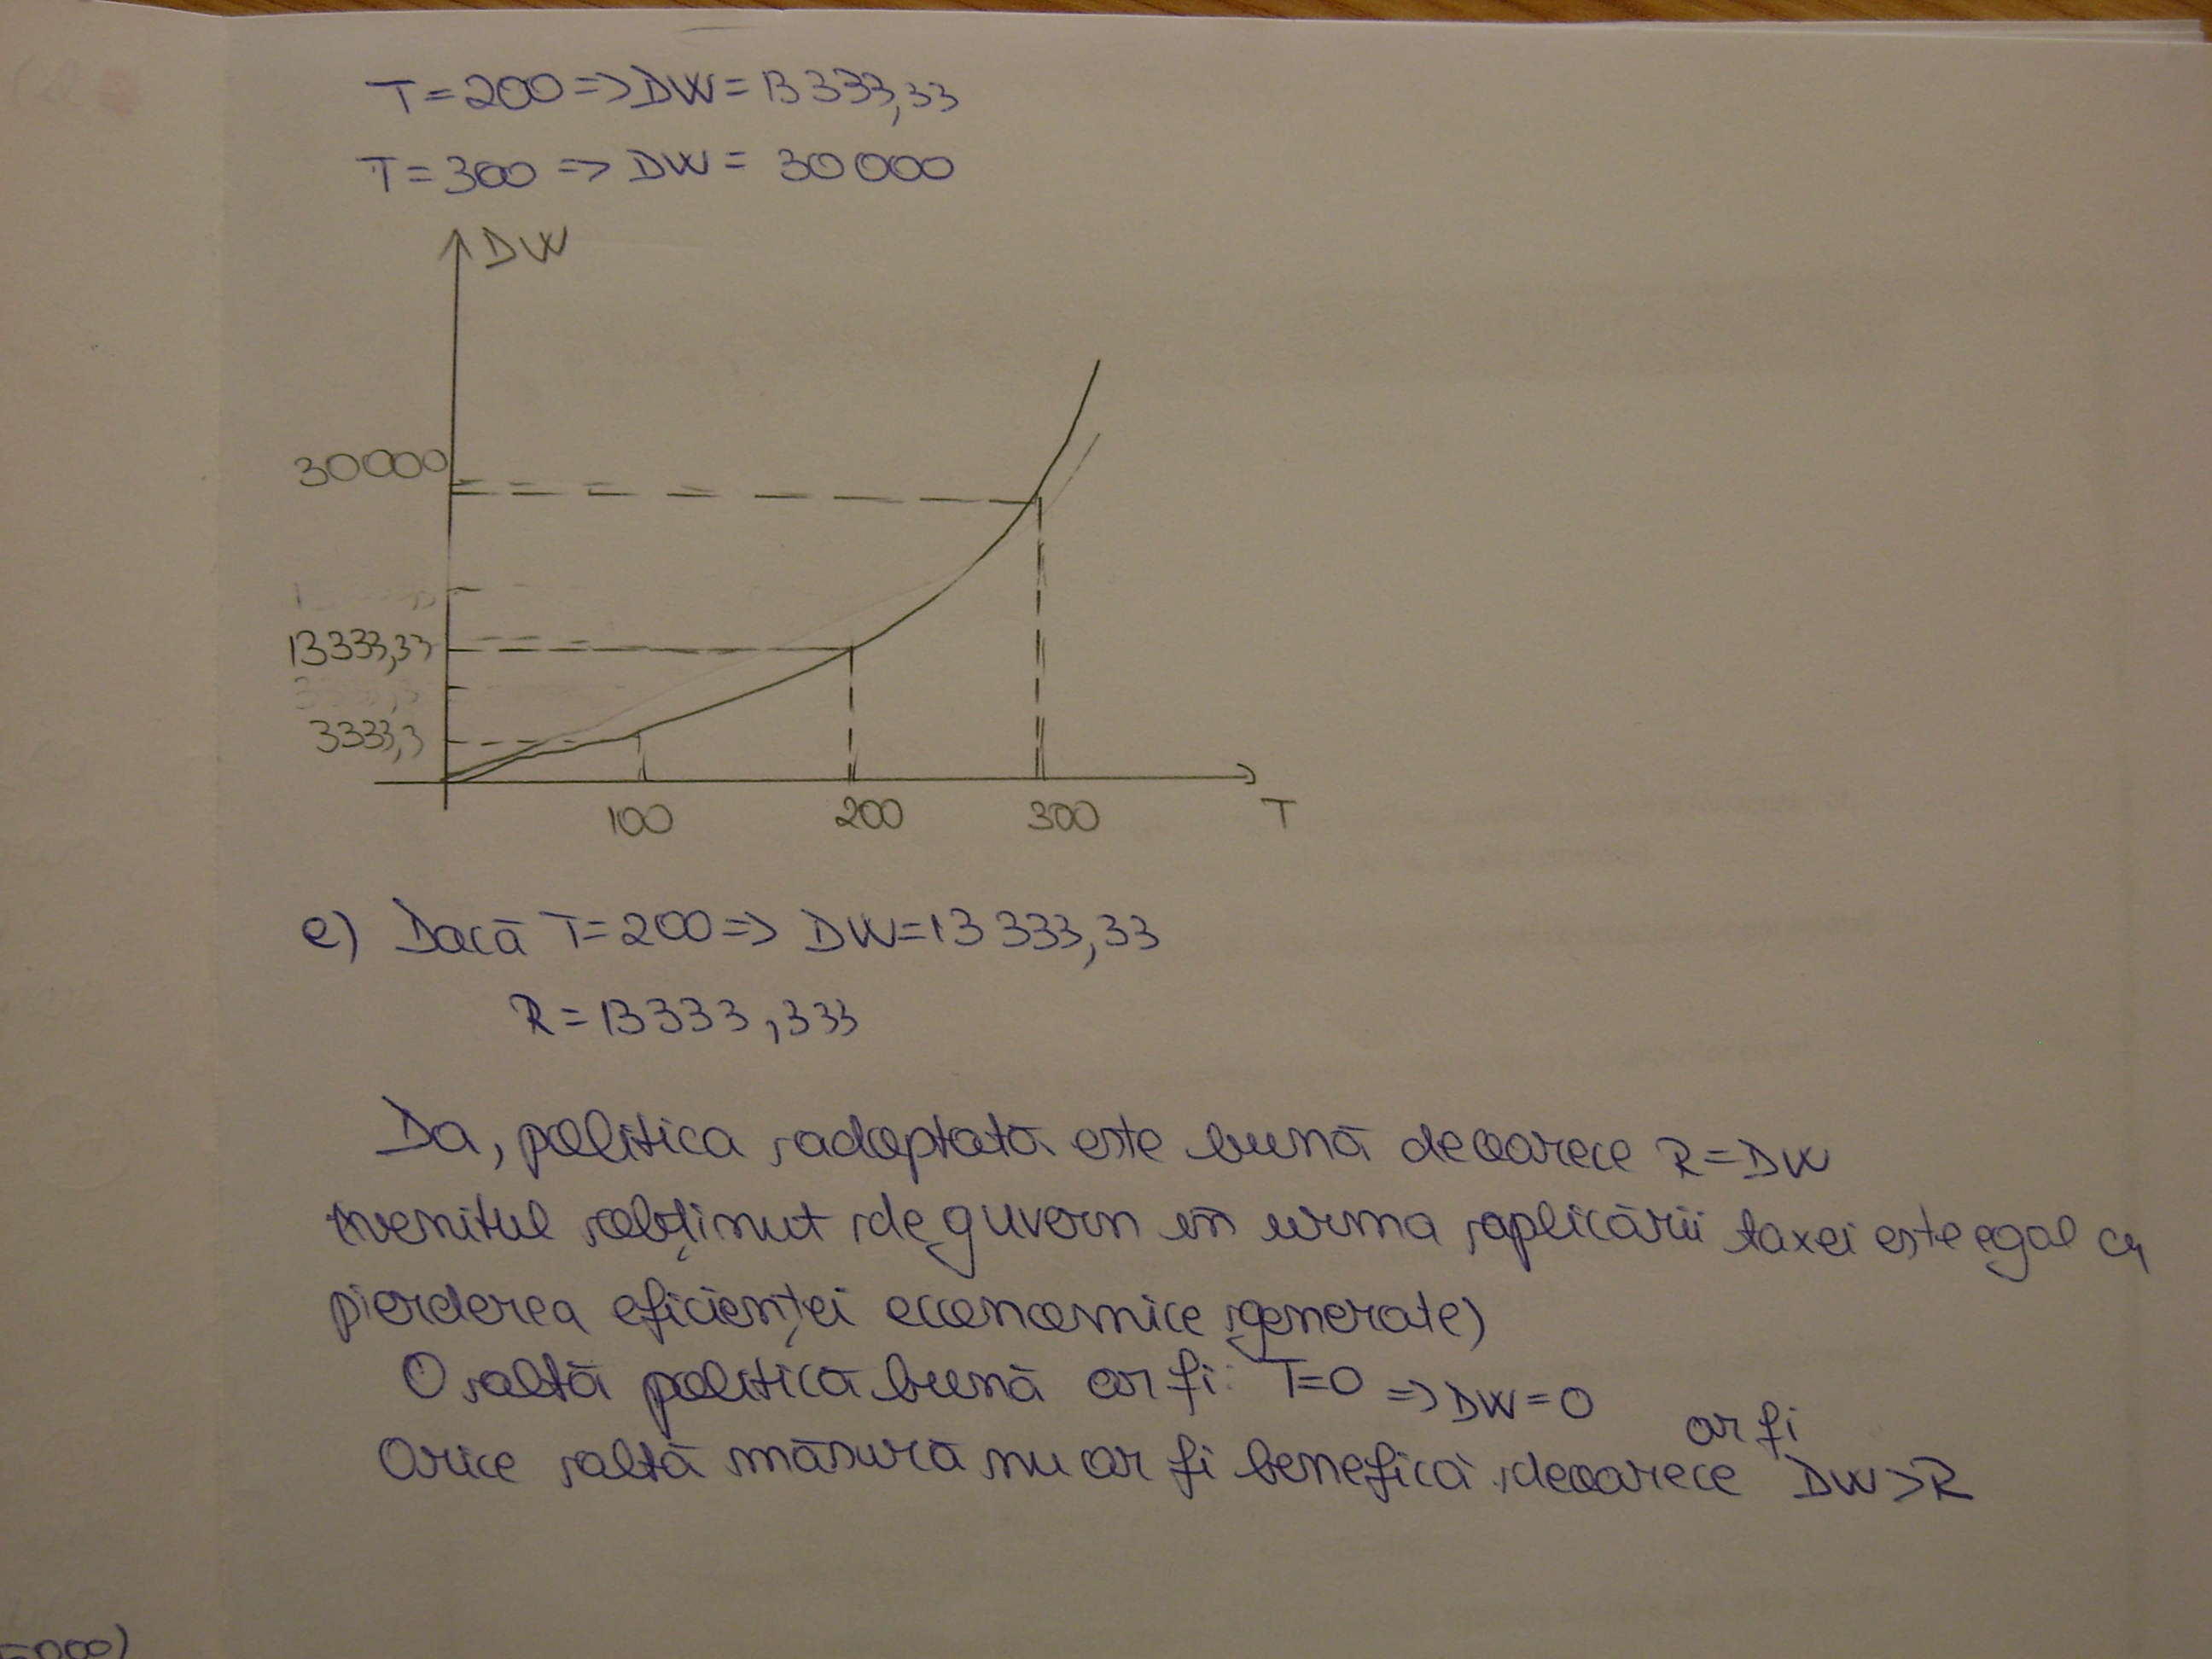 T=200 => DW = 13 333,33
T=300 => DW = 30 000
DW
30000
13333,33
3333,3
100 200 300 T
e) Dacă T=200 => DW=13 333,33
R=13333,333
Da, politica adoptată este bună deoarece R=DW
(venitul obținut de guvern în urma aplicării taxei este egal cu
pierderea eficienței economice generate)
O altă politică bună ar fi: T=0 => DW=0
ar fi
Orice altă măsură nu ar fi benefică deoarece DW>R